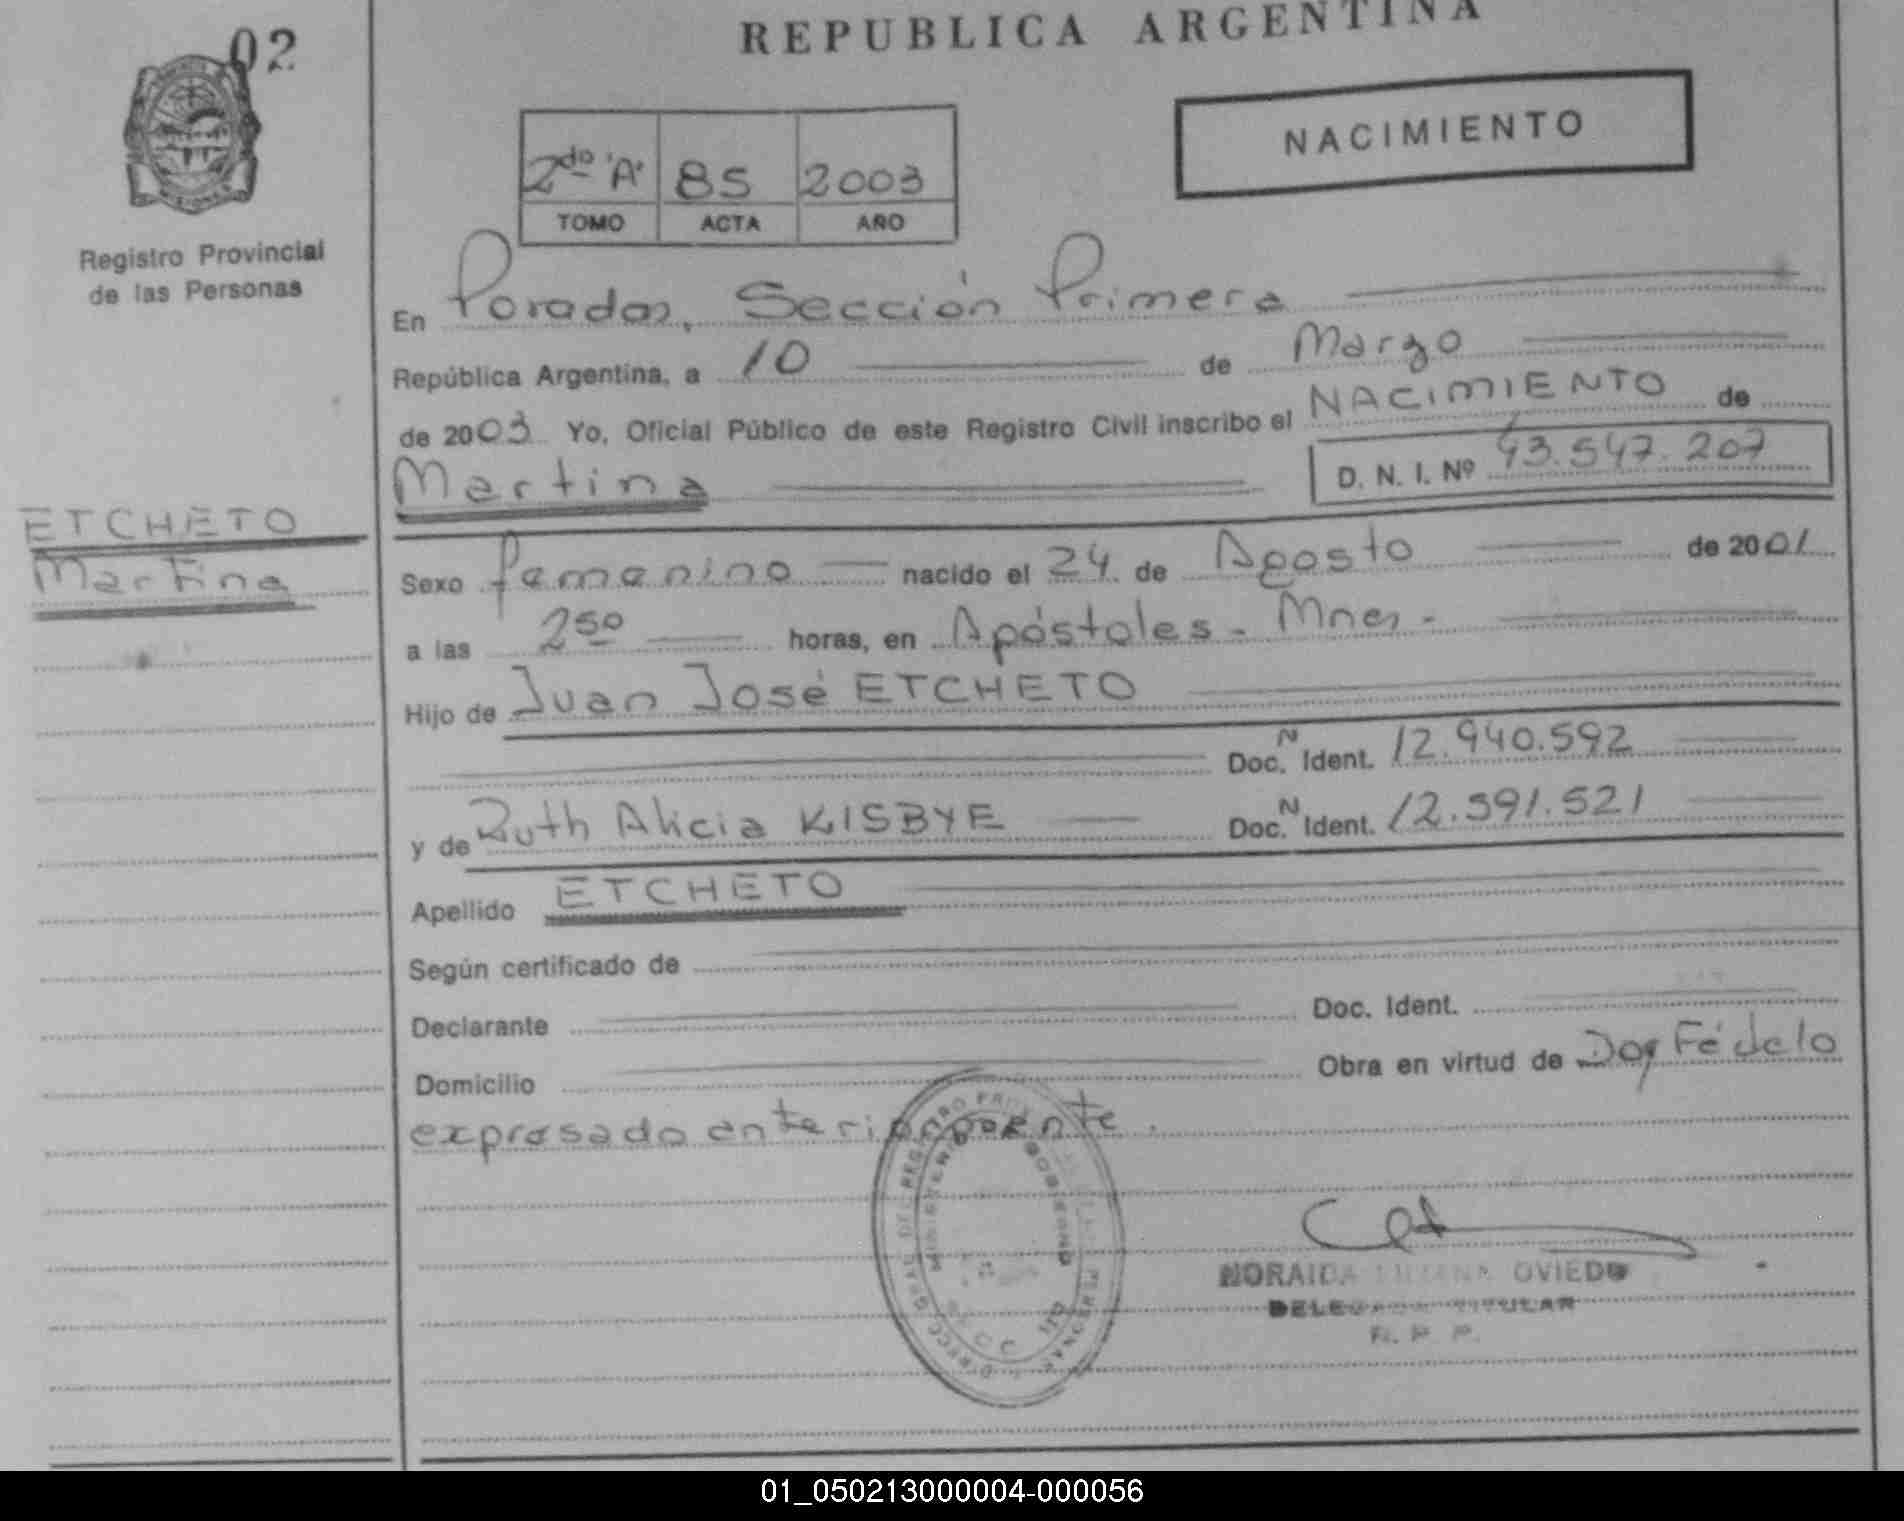 02
REPUBLICA ARGENTINA
NACIMIENTO
2do "A" 85 2003
TOMO ACTA AÑO
Registro Provincial
de las Personas
En Posadas, Sección Primera
República Argentina, a 10 de Marzo
de 2003 Yo, Oficial Público de este Registro Civil inscribo el NACIMIENTO de
Martina D. N. I. Nº 43.547.207
ETCHETO
Martina
Sexo femenino nacido el 24 de Agosto de 2001
a las 2 50 horas, en Apóstoles - Mnes -
Hijo de Juan José ETCHETO
Doc. N Ident. 12.940.592
y de Ruth Alicia KISBYE Doc. N Ident. 12.591.521
Apellido ETCHETO
Según certificado de
Declarante Doc. Ident.
Domicilio Obra en virtud de Doy Fé de lo
expresado anteriormente.
NORAIDA LILIANA OVIEDO
DELEGADA TITULAR
R. P. P.
01_050213000004-000056